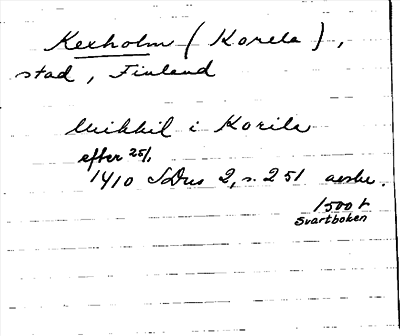 Kexholm (Korela),
stad, Finland
Mikkil i Korila
efter 25/1
1410 SDns 2, s. 251 avskr.
1500 t
Svartboken